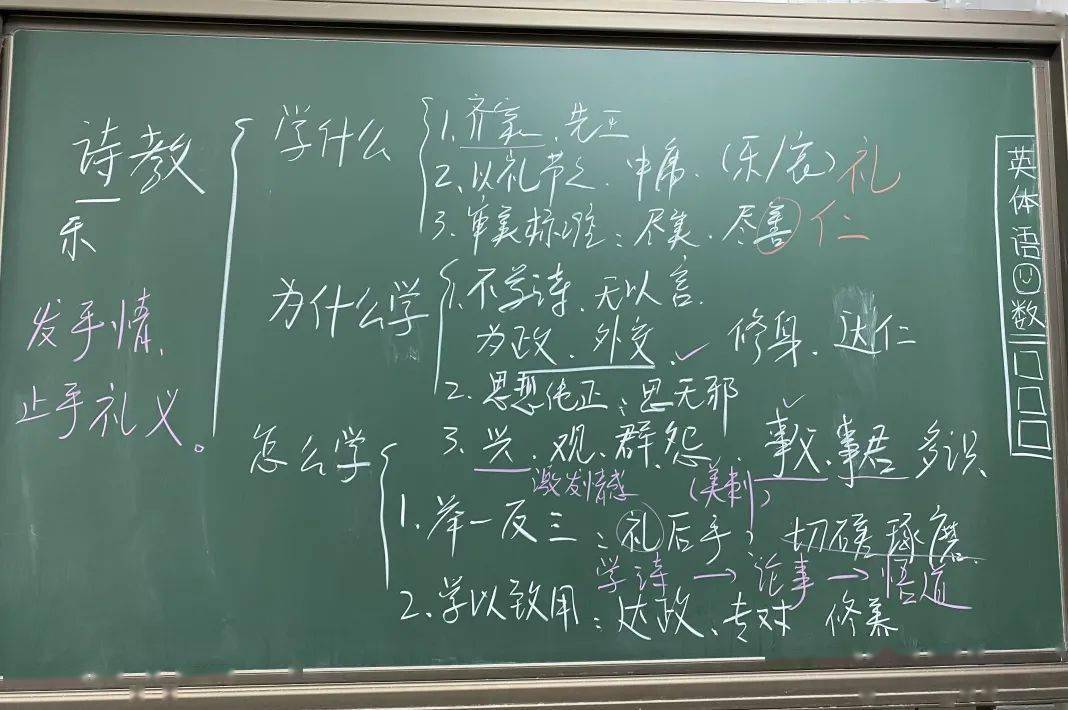 诗教
乐
发乎情、
止乎礼义。
学什么
1、齐家、先王
2、以礼节之、中庸、(乐/哀) 礼
3、审美标准：尽美、尽善 仁
为什么学
1、不学诗，无以言．
为政、外交、✓ 修身、达仁
2、思想纯正：思无邪
3、兴、观、群、怨、事父、事君 多识
激发情感 (美刺)
怎么学
1、举一反三：礼后乎？切磋琢磨
学诗→论事→悟道
2、学以致用：达政、专对 修养
英
体
语
数